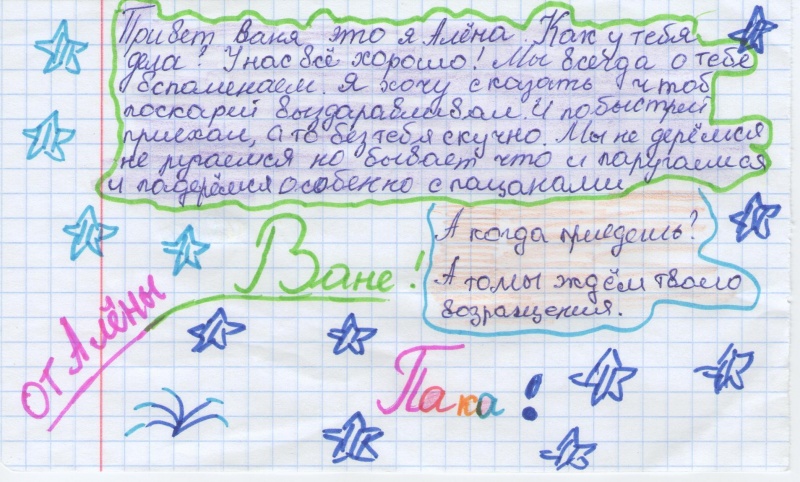 Привет Ваня это я Алёна. Как у тебя
дела? У нас всё хорошо! Мы всегда о тебе
вспоменаем. Я хочу сказать чтоб
поскарей выздаравливал. И побыстрей
приехал, а то без тебя скучно. Мы не дерёмся
не ругаемся но бывает что и паругаемся
и падерёмся особенно с пацанами
А когда приедешь?
А то мы ждём твоего
возращения.
Ване!
от Алёны
Пака!